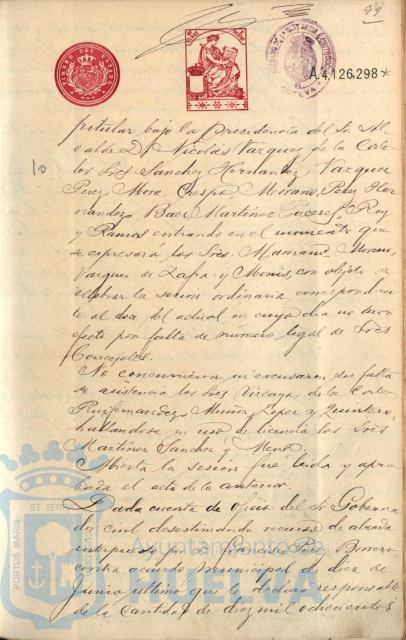 99
TIMBRE DEL ESTADO
HUELVA
A4,126,298*
pitular bajo la Presidencia del Sr Al
calde D. Nicolás Vazquez de la Corte
los Sres Sanchez Hernandez, Vazquez
10
Perez, Mora, Crespo, Morano, Perez Her
nandez, Baez, Martinez, Roy
y Ramos entrando en el momento que
se expresara los Sres. Manzano, Moreno
Vazquez de Zapa y Monis, con objeto de
celebrar la sesion ordinaria, correspondien
te al dia del actual en cuyo dia no tuvo
efecto por falta de número legal de Sres
Concejales.
No concurrieron ni excusaron su falta
de asistencia los Sres Vizcaya, de la Corte
Ruifernandez, Muñoz, Lopez y Quintero,
hallandose en uso de licencia los Sres
Martinez Sanchez y Mora.
Abierta la sesion fue leida y apro
bada el acta de la anterior.
Dada cuenta de oficio del Sr Goberna
dor civil desestimando recurso de alzada
interpuesto por D. Francisco Perez Borrero
contra acuerdo municipal de diez de
Junio ultimo que le declaró responsable
de la cantidad de diez mil ochocientos
PORTUS MARIS
ET TERRAE
Ayuntamiento de
HUELVA